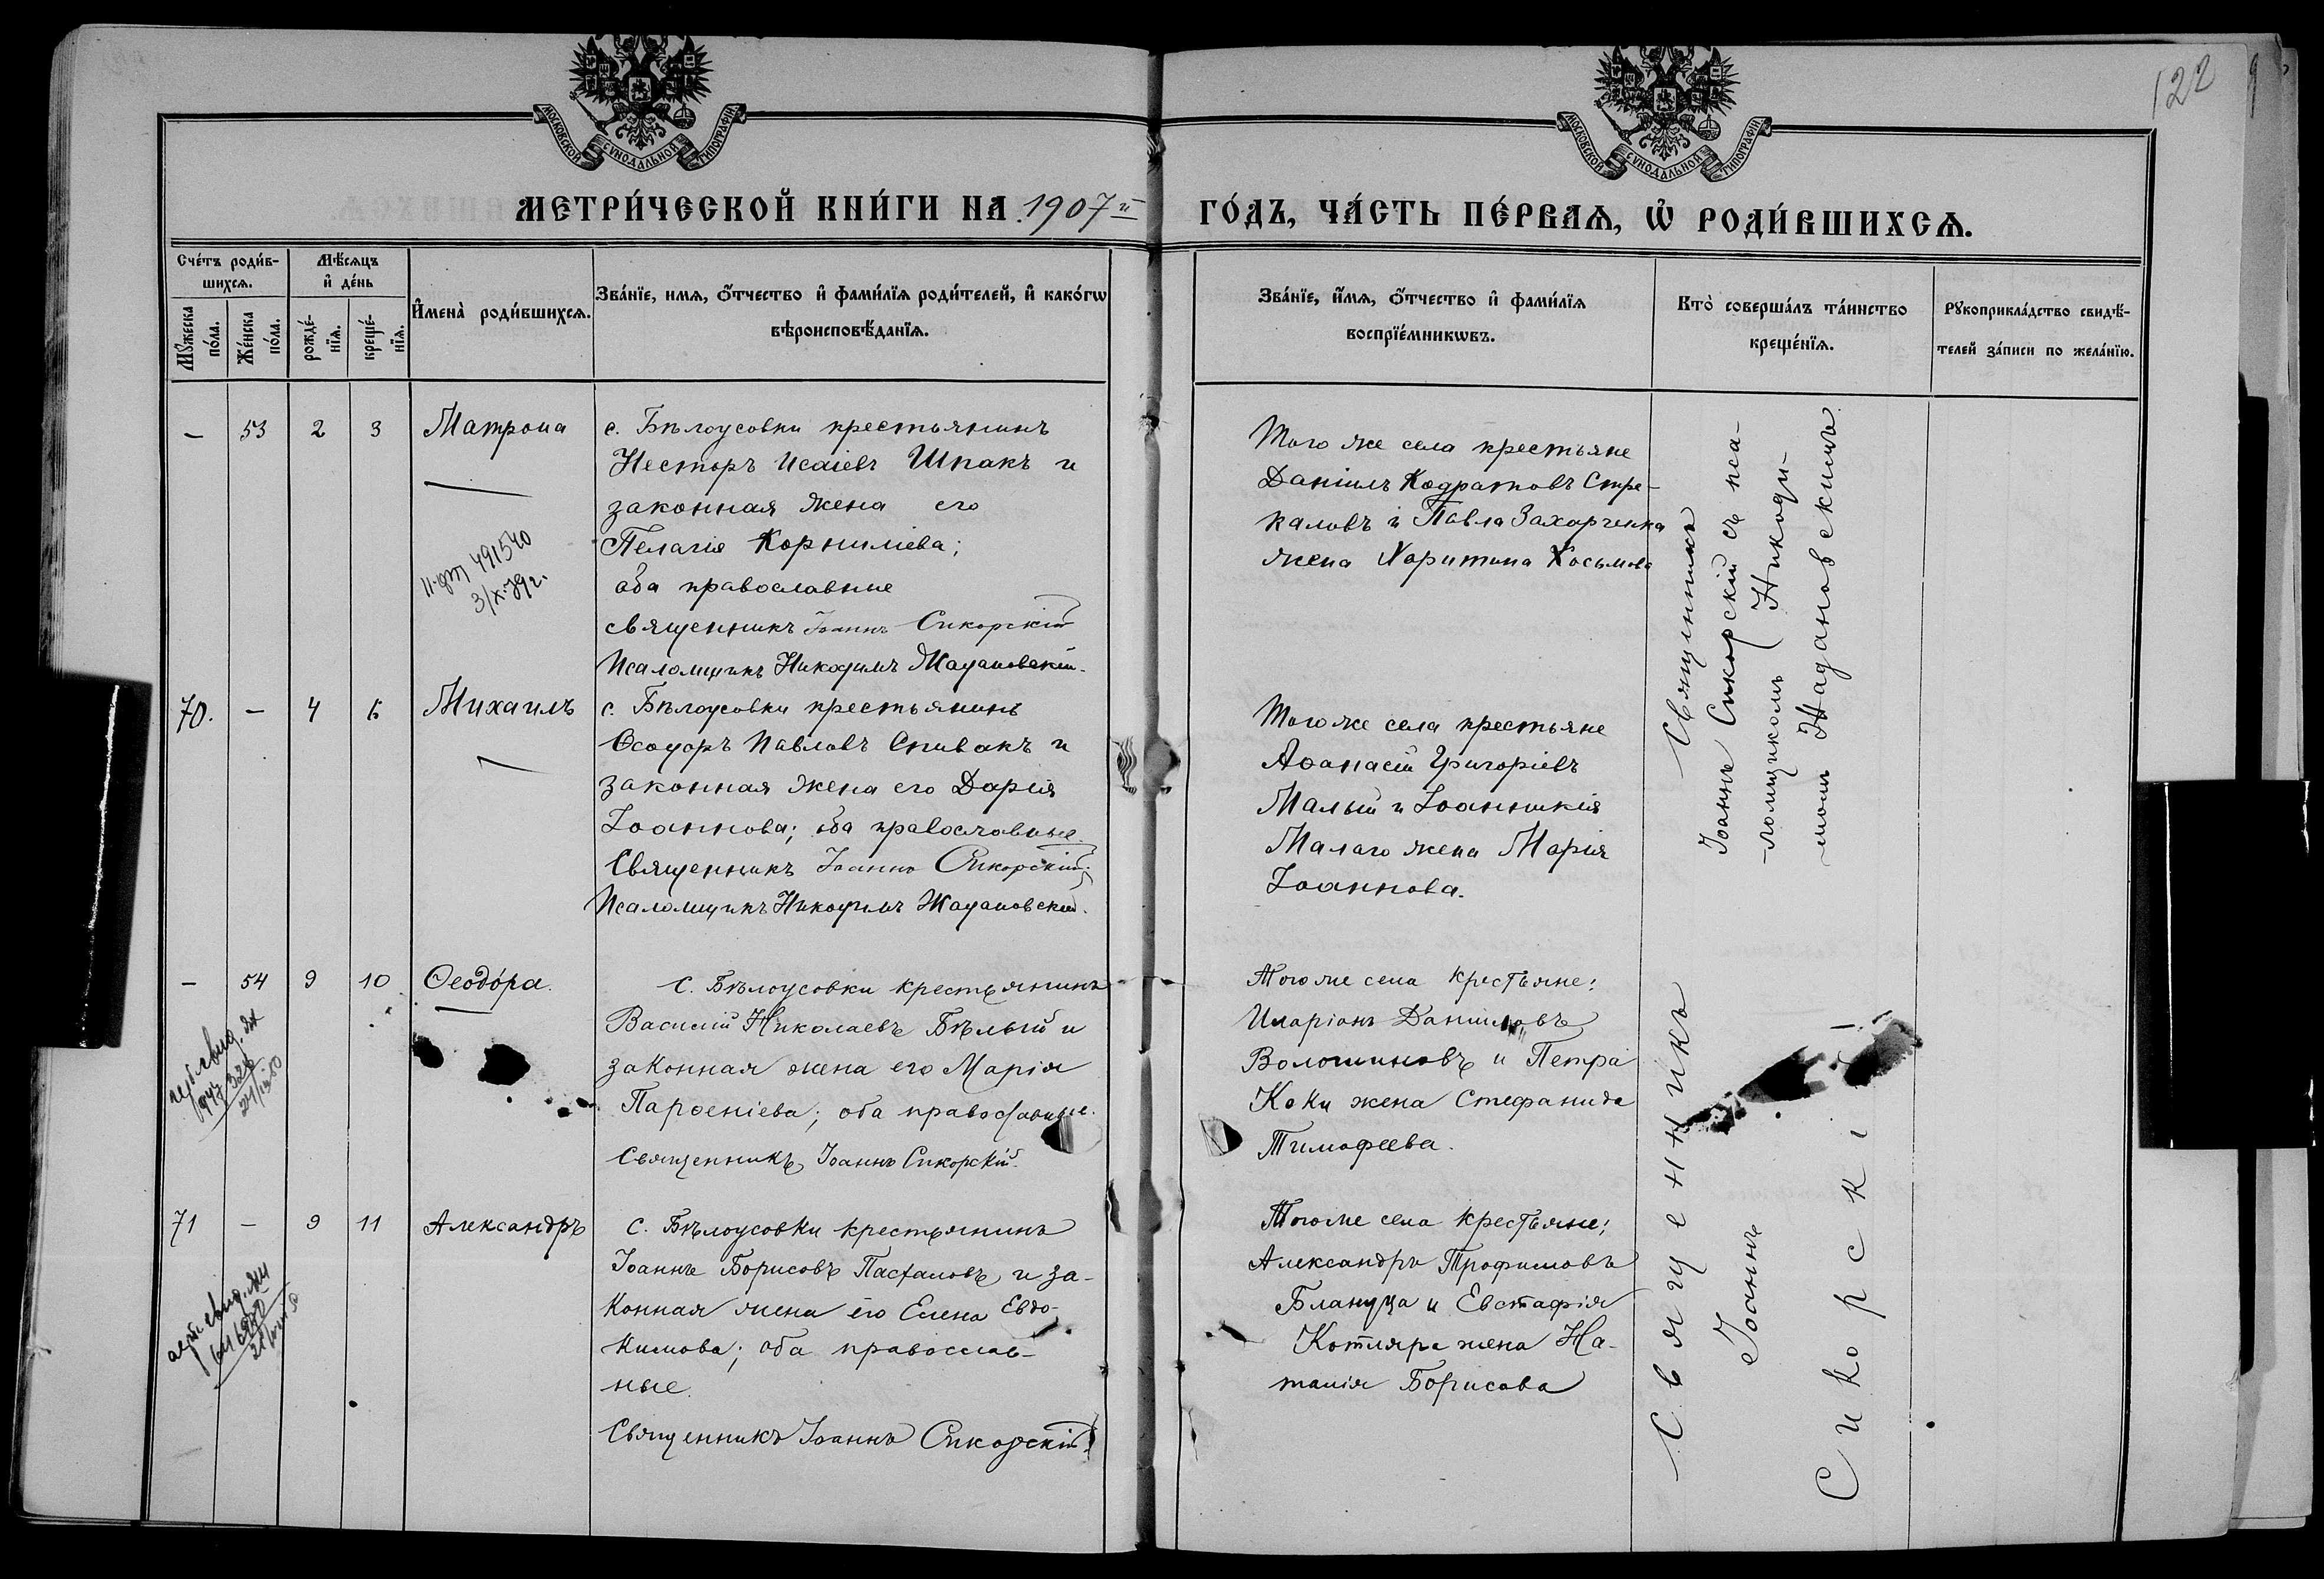 122
МОСКОВСКОЙ СѴНОДАЛЬНОЙ ТИПОГРАФІИ
МОСКОВСКОЙ СѴНОДАЛЬНОЙ ТИПОГРАФІИ
МЕТРИ́ЧЕСКОЙ КНИ́ГИ НА 1907й ГО́ДЪ, ЧА́СТЬ ПЕ́РВАѦ, Ѡ҆ РОДИ́ВШИХСѦ.
Сче́тъ роди́в-
шихсѧ.
Мꙋжеска по́ла.
Же́нска по́ла.
Мѣ́сѧцъ
и҆ де́нь
рожде́-
нїѧ.
креще́-
нїѧ.
И҆мена̀ роди́вшихсѧ.
Зва́нїе, имѧ, ѻ҆́тчество и҆ фами́лїѧ роди́телей, и҆ како́гѡ
вѣроисповѣ́данїѧ.
Зва́нїе, и҆́мѧ, ѻ҆́тчество и҆ фами́лїѧ
воспрїе́мникѡвъ.
Кто̀ соверша́лъ та́инство
креще́нїѧ.
Рꙋкоприкла́дство свидѣ́-
телей за́писи по жела́нїю.
— 53 2 3 Матрона
с. Бѣлоусовки крестьянинъ
Несторъ Исаіевъ Шпакъ и
законная жена его
Пелагія Корниліева;
оба православные
священникъ Іоаннъ Сикорскій
Псаломщикъ Никодимъ Жадановскій.
491540
3/X-79г.
Того же села крестьяне
Даніилъ Кодратовъ Стре-
каловъ и Павла Захарченка
жена Харитина Косьмова
Священникъ
Іоаннъ Сикорскій съ пса-
ломщикомъ Никоди-
момъ Жадановскимъ
70. — 4 6 Михаилъ
с. Бѣлоусовки крестьянинъ
Ѳеодоръ Павловъ Спивакъ и
законная жена его Дарія
Іоаннова; оба православные.
Священникъ Іоаннъ Сикорскій.
Псаломщикъ Никодимъ Жадановскій.
Того же села крестьяне
Аѳанасій Григоріевъ
Малый и Іоанникія
Малаго жена Марія
Іоаннова.
— 54 9 10 Ѳеодо́ра.
С. Бѣлоусовки крестьянинъ
Василій Николаевъ Бѣлый и
законная жена его Марія
Парѳеніева; оба православные.
Священникъ Іоаннъ Сикорскій.
Того же села крестьяне:
Иларіонъ Даниловъ
Волошиновъ и Петра
Коки жена Стефанида
Тимофеева.
71 — 9 11 Александръ
С. Бѣлоусовки крестьянинъ
Іоаннъ Борисовъ Пасталовъ и за-
конная жена его Елена Евдо-
кимова; оба православ-
ные.
Священникъ Іоаннъ Сикорскій
Того же села крестьяне:
Александръ Трофимовъ
Блануца и Евстафія
Котляра жена На-
талія Борисова
Священникъ
Іоаннъ
Сикорскі